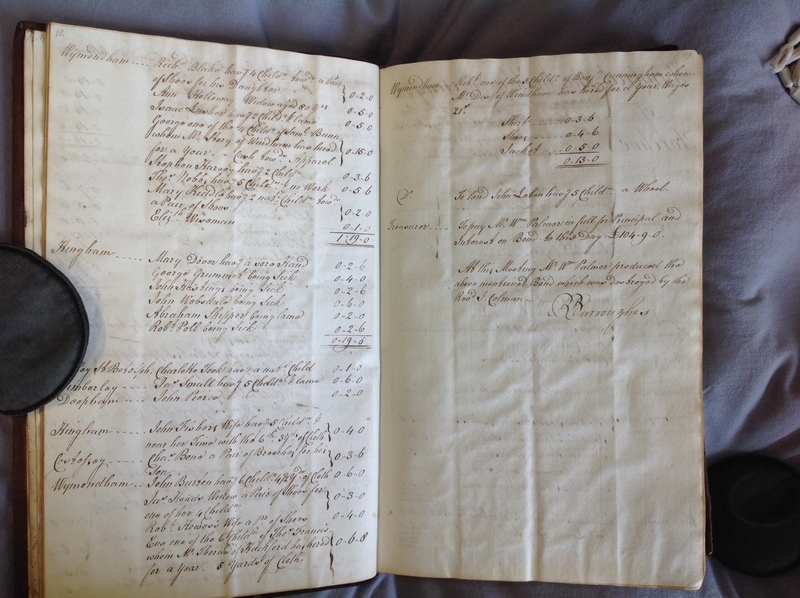 Wymondham ---- Richd. Blake havg. 4 Childn. towds. a Pair
of Shoes for his Daughter 0-2-0
Ann Holloway Widow aged 80 yrs 0-5-0
Isaac havg. 2 Childn. & lame 0-5-0
George one of the 4 Childn. of Saml. Bunn
whom Mr. Story of Windham has hired
for a Year. - Cash towds. Apparel 0-15-0
Stephen Harvey havg. 2 Childn. 0-3-6
Thos. Nobbs havg. 5 Childn. & no Work 0-5-6
Mary havg. 2 Childn. towds.
a Pair of Shoes 0-2-0
Elizth. Wiseman 0-1-0
1-19-0
Hingham ---- Mary Dover havg. a sore Hand 0-2-6
George being Sick 0-4-0
John Hastings being Sick 0-2-6
John being Sick 0-6-0
Abraham being lame 0-2-0
Robt. Poll being Sick 0-2-6
0-19-6
St. Charlotte Took havg. a Child 0-1-0
Kimberley ---- Jas. Small havg. 5 Childn. & lame 0-6-0
Deopham ---- John Pearce 0-2-0
Hingham ---- John Fishers Wife havg. 5 Childn. &
near her Time with the 6th. 3 yds. of Cloth 0-4-0
Costessey ---- Chas. Bond a Pair of Breeches for his
Son 0-3-6
Wymondham ---- John Burton havg. 6 Childn. 4 1/2 yds. of Cloth 0-6-0
Jas. Widow a Pair of Shoes for
one of her 4 Childn. 0-3-0
Robt. Howes's Wife a Pr. of Shoes 0-4-0
one of the 6 Childn. of Thos. Francis
whom Mr. Thorne of has hired
for a Year. 5 Yards of Cloth 0-6-8
Wymondham Robt. one of the 3 Childn. of Benj. Cunningham whom
Mr. of Windham has hired for a Year. Wages
21s.
Shirt ---- 0-3-6
Shoes ---- 0-4-6
Jacket ---- 0-5-0
0-13-0
Do. To lend John Laken havg. 5 Childn. a Wheel.
Treasurer ---- To pay Mr. Wm. Palmer in full for Principal and
Interest on Bond to this Day £104-9-0.
At this Meeting Mr. Wm. Palmer produced the
above mentioned Bond which was destroyed by the
Revd. J. Colman
R Burroughes